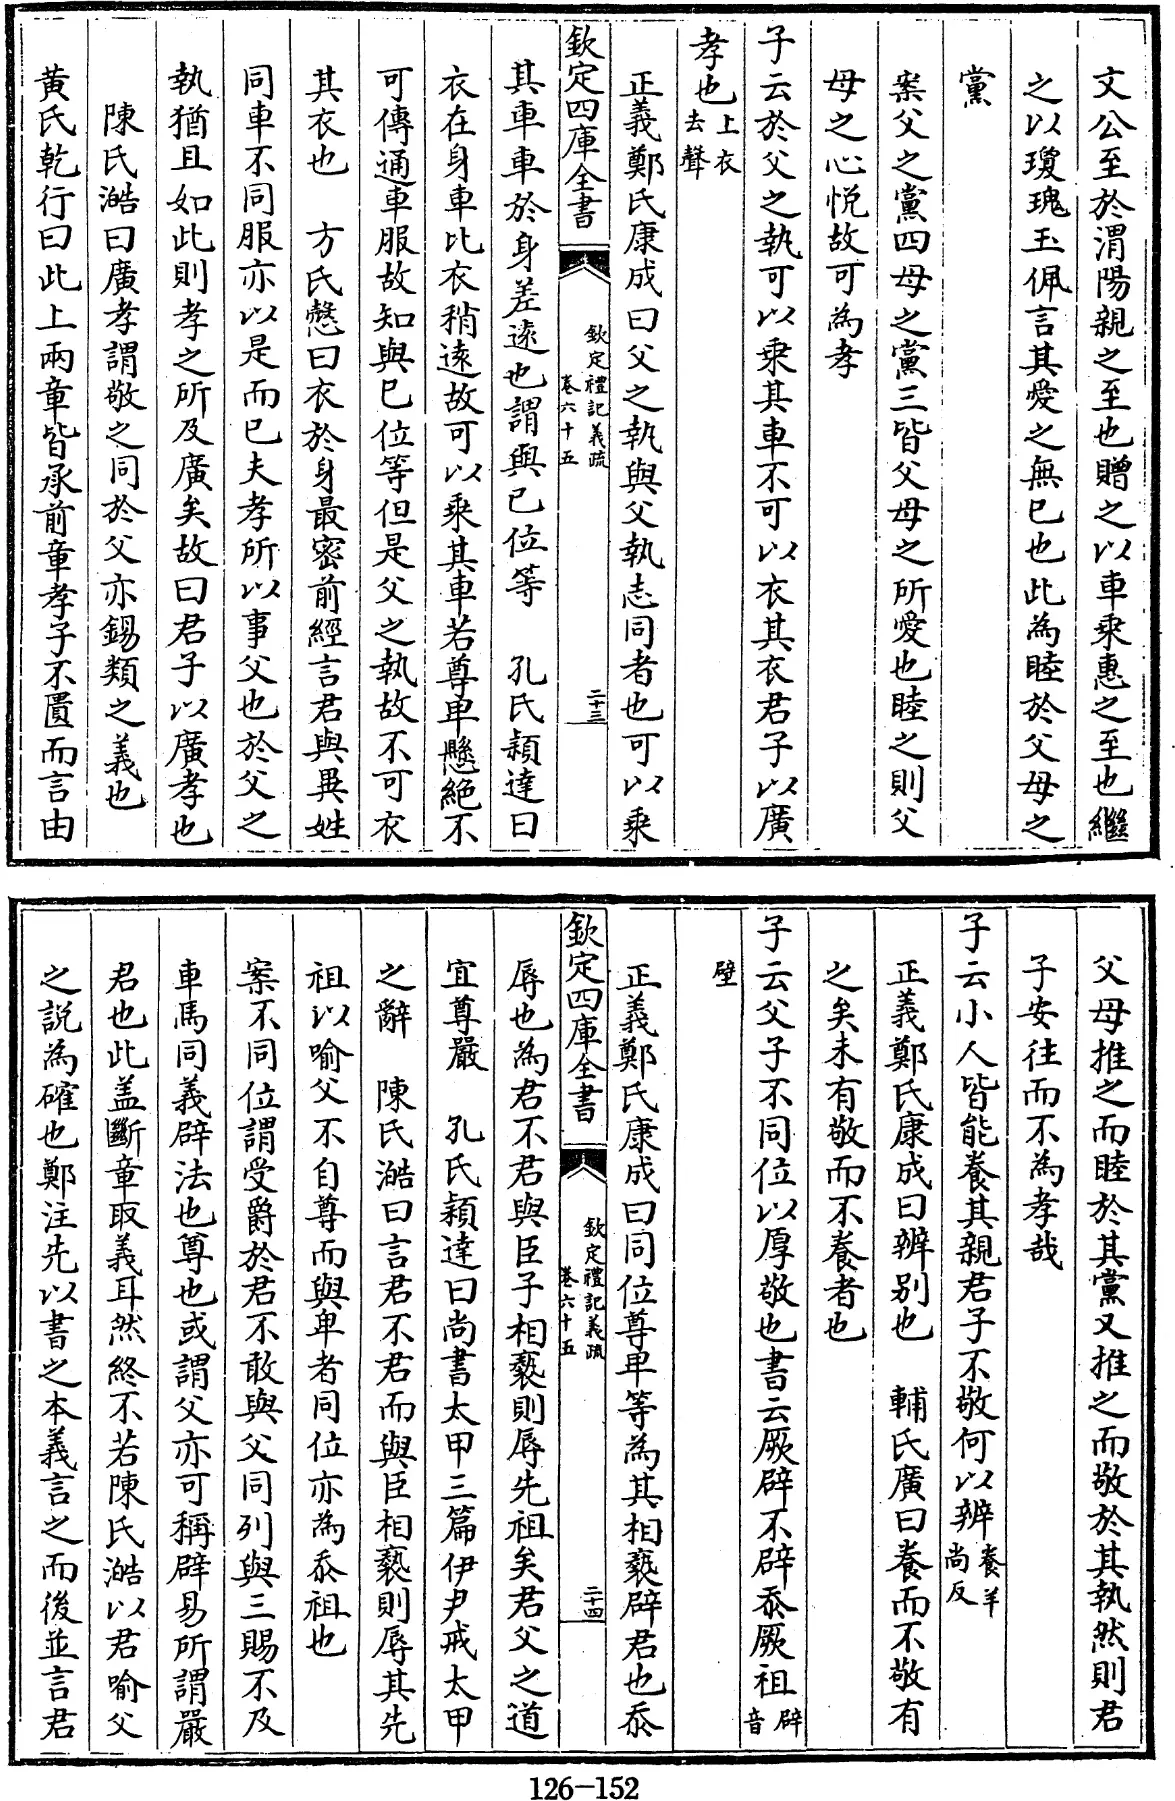 文公至於渭陽親之至也贈之以車乘惠之至也繼
之以瓊瑰玉佩言其愛之無已也此為睦於父母之
黨
案父之黨四母之黨三皆父母之所愛也睦之則父
母之心悅故可為孝
子云於父之執可以乘其車不可以衣其衣君子以廣
孝也上衣去聲
正義鄭氏康成曰父之執與父執志同者也可以乘
欽定四庫全書 欽定禮記義疏 卷六十五 二十三
其車車於身差遠也謂與已位等 孔氏穎達曰
衣在身車比衣稍遠故可以乘其車若尊卑懸絕不
可傳通車服故知與已位等但是父之執故不可衣
其衣也 方氏慤曰衣於身最密前經言君與異姓
同車不同服亦以是而已夫孝所以事父也於父之
執猶且如此則孝之所及廣矣故曰君子以廣孝也
陳氏澔曰廣孝謂敬之同於父亦錫類之義也
黃氏乾行曰此上兩章皆承前章孝子不匱而言由
父母推之而睦於其黨又推之而敬於其執然則君
子安往而不為孝哉
子云小人皆能養其親君子不敬何以辨養羊尚反
正義鄭氏康成曰辨别也 輔氏廣曰養而不敬有
之矣未有敬而不養者也
子云父子不同位以厚敬也書云厥辟不辟忝厥祖辟音
壁
正義鄭氏康成曰同位尊卑等為其相䙝辟君也忝
欽定四庫全書 欽定禮記義疏 卷六十五 二十四
辱也為君不君與臣子相䙝則辱先祖矣君父之道
宜尊嚴 孔氏穎達曰尚書太甲三篇伊尹戒太甲
之辭 陳氏澔曰言君不君而與臣相䙝則辱其先
祖以喻父不自尊而與卑者同位亦為忝祖也
案不同位謂受爵於君不敢與父同列與三賜不及
車馬同義辟法也尊也或謂父亦可稱辟易所謂嚴
君也此盖斷章取義耳然終不若陳氏澔以君喻父
之説為確也鄭注先以書之本義言之而後並言君
126-152